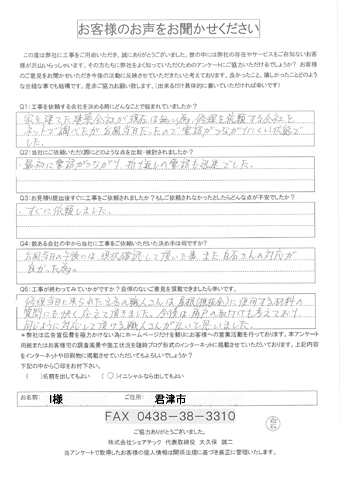 お客様のお声をお聞かせください
この度は弊社に工事をご用命いただき、誠にありがとうございました。世の中には弊社の存在やサービスをご存知ないお客
様が沢山いらっしゃいます。その方たちに弊社をよく知っていただくためのアンケートにご協力いただけるでしょうか? お客様
のご意見をお聞かせいただき今後の活動に反映させていきたいと考えております。良かったこと、嬉しかったことどのよう
な些細な事でも結構です。是非ご協力お願い致します。(出来るだけ具体的に書いていただければ幸いです)
Q1:工事を依頼する会社を決める時にどんなことで悩まれていましたか?
家を建てた建築会社が現在は無い為、修理を依頼する会社を
ネットで調べたが台風当日だったので電話がつながりにくい状態で
した。
Q2:当社にご依頼いただく際にどのような点を比較・検討されましたか?
最初に電話がつながり、折り返しの電話も迅速でした。
Q3:お見積り提出後すぐに工事をご依頼されましたか?もしご依頼されなかったとしたらどんな点が不安でしたか?
すぐに依頼しました。
Q4:数ある会社の中から当社に工事をご依頼いただいた決め手は何ですか?
台風当日の午後には、現状確認して頂いた事、また白石さんの対応が
良かった為。
Q5:工事が終わってみていかがですか?忌憚のないご意見を頂戴できましたら幸いです。
修理当日に来られた
に使用する材料の
質問にも快く応えて頂きました。今後は雨戸の取付けも考えており、
同じように対応して頂ける職人さんが良いと思いました。
※弊社は広告宣伝費を極力かけない為にホームページだけを頼りにお客様への営業活動を行っております。本アンケート
用紙またはお客様宅の調査風景や施工状況を随時ブログ形式のインターネットに掲載させていただいております。上記内容
をインターネットや印刷物に掲載させていただいてもよろしいでしょうか?
下記の中から〇印をお付け下さい。
( )名前を出してもよい (〇)イニシャルなら出してもよい
お名前: I様 ご住所: 君津市
FAX 0438-38-3310
白石
ご協力ありがとうございました。
株式会社シェアテック 代表取締役 大久保 誠二
当アンケートで取得したお客様の個人情報は関係法規に基づき厳正に管理いたします。